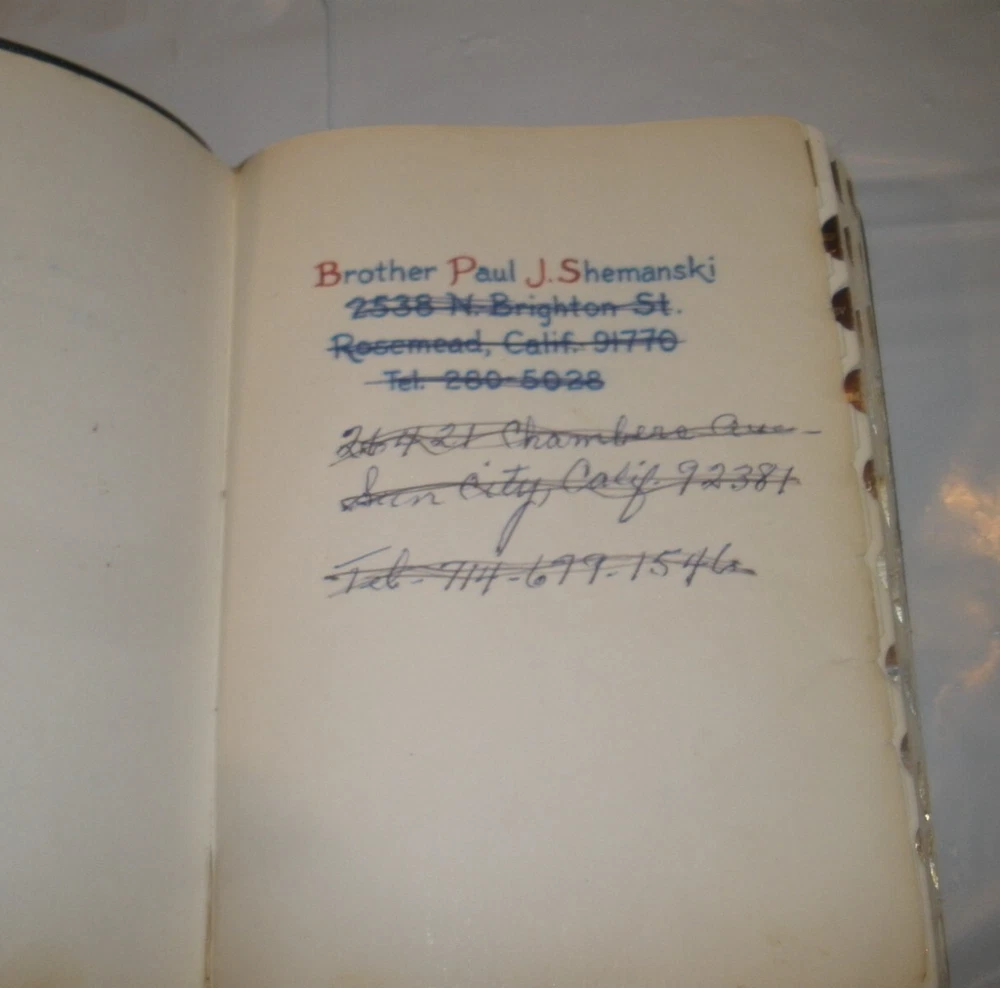 Brother Paul J. Shemanski
2538 N. Brighton St.
Rosemead, Calif. 91770
Tel. 280-5028
26421 Chambers Ave.
Sun City, Calif. 92381
Tel- 714-679-1546